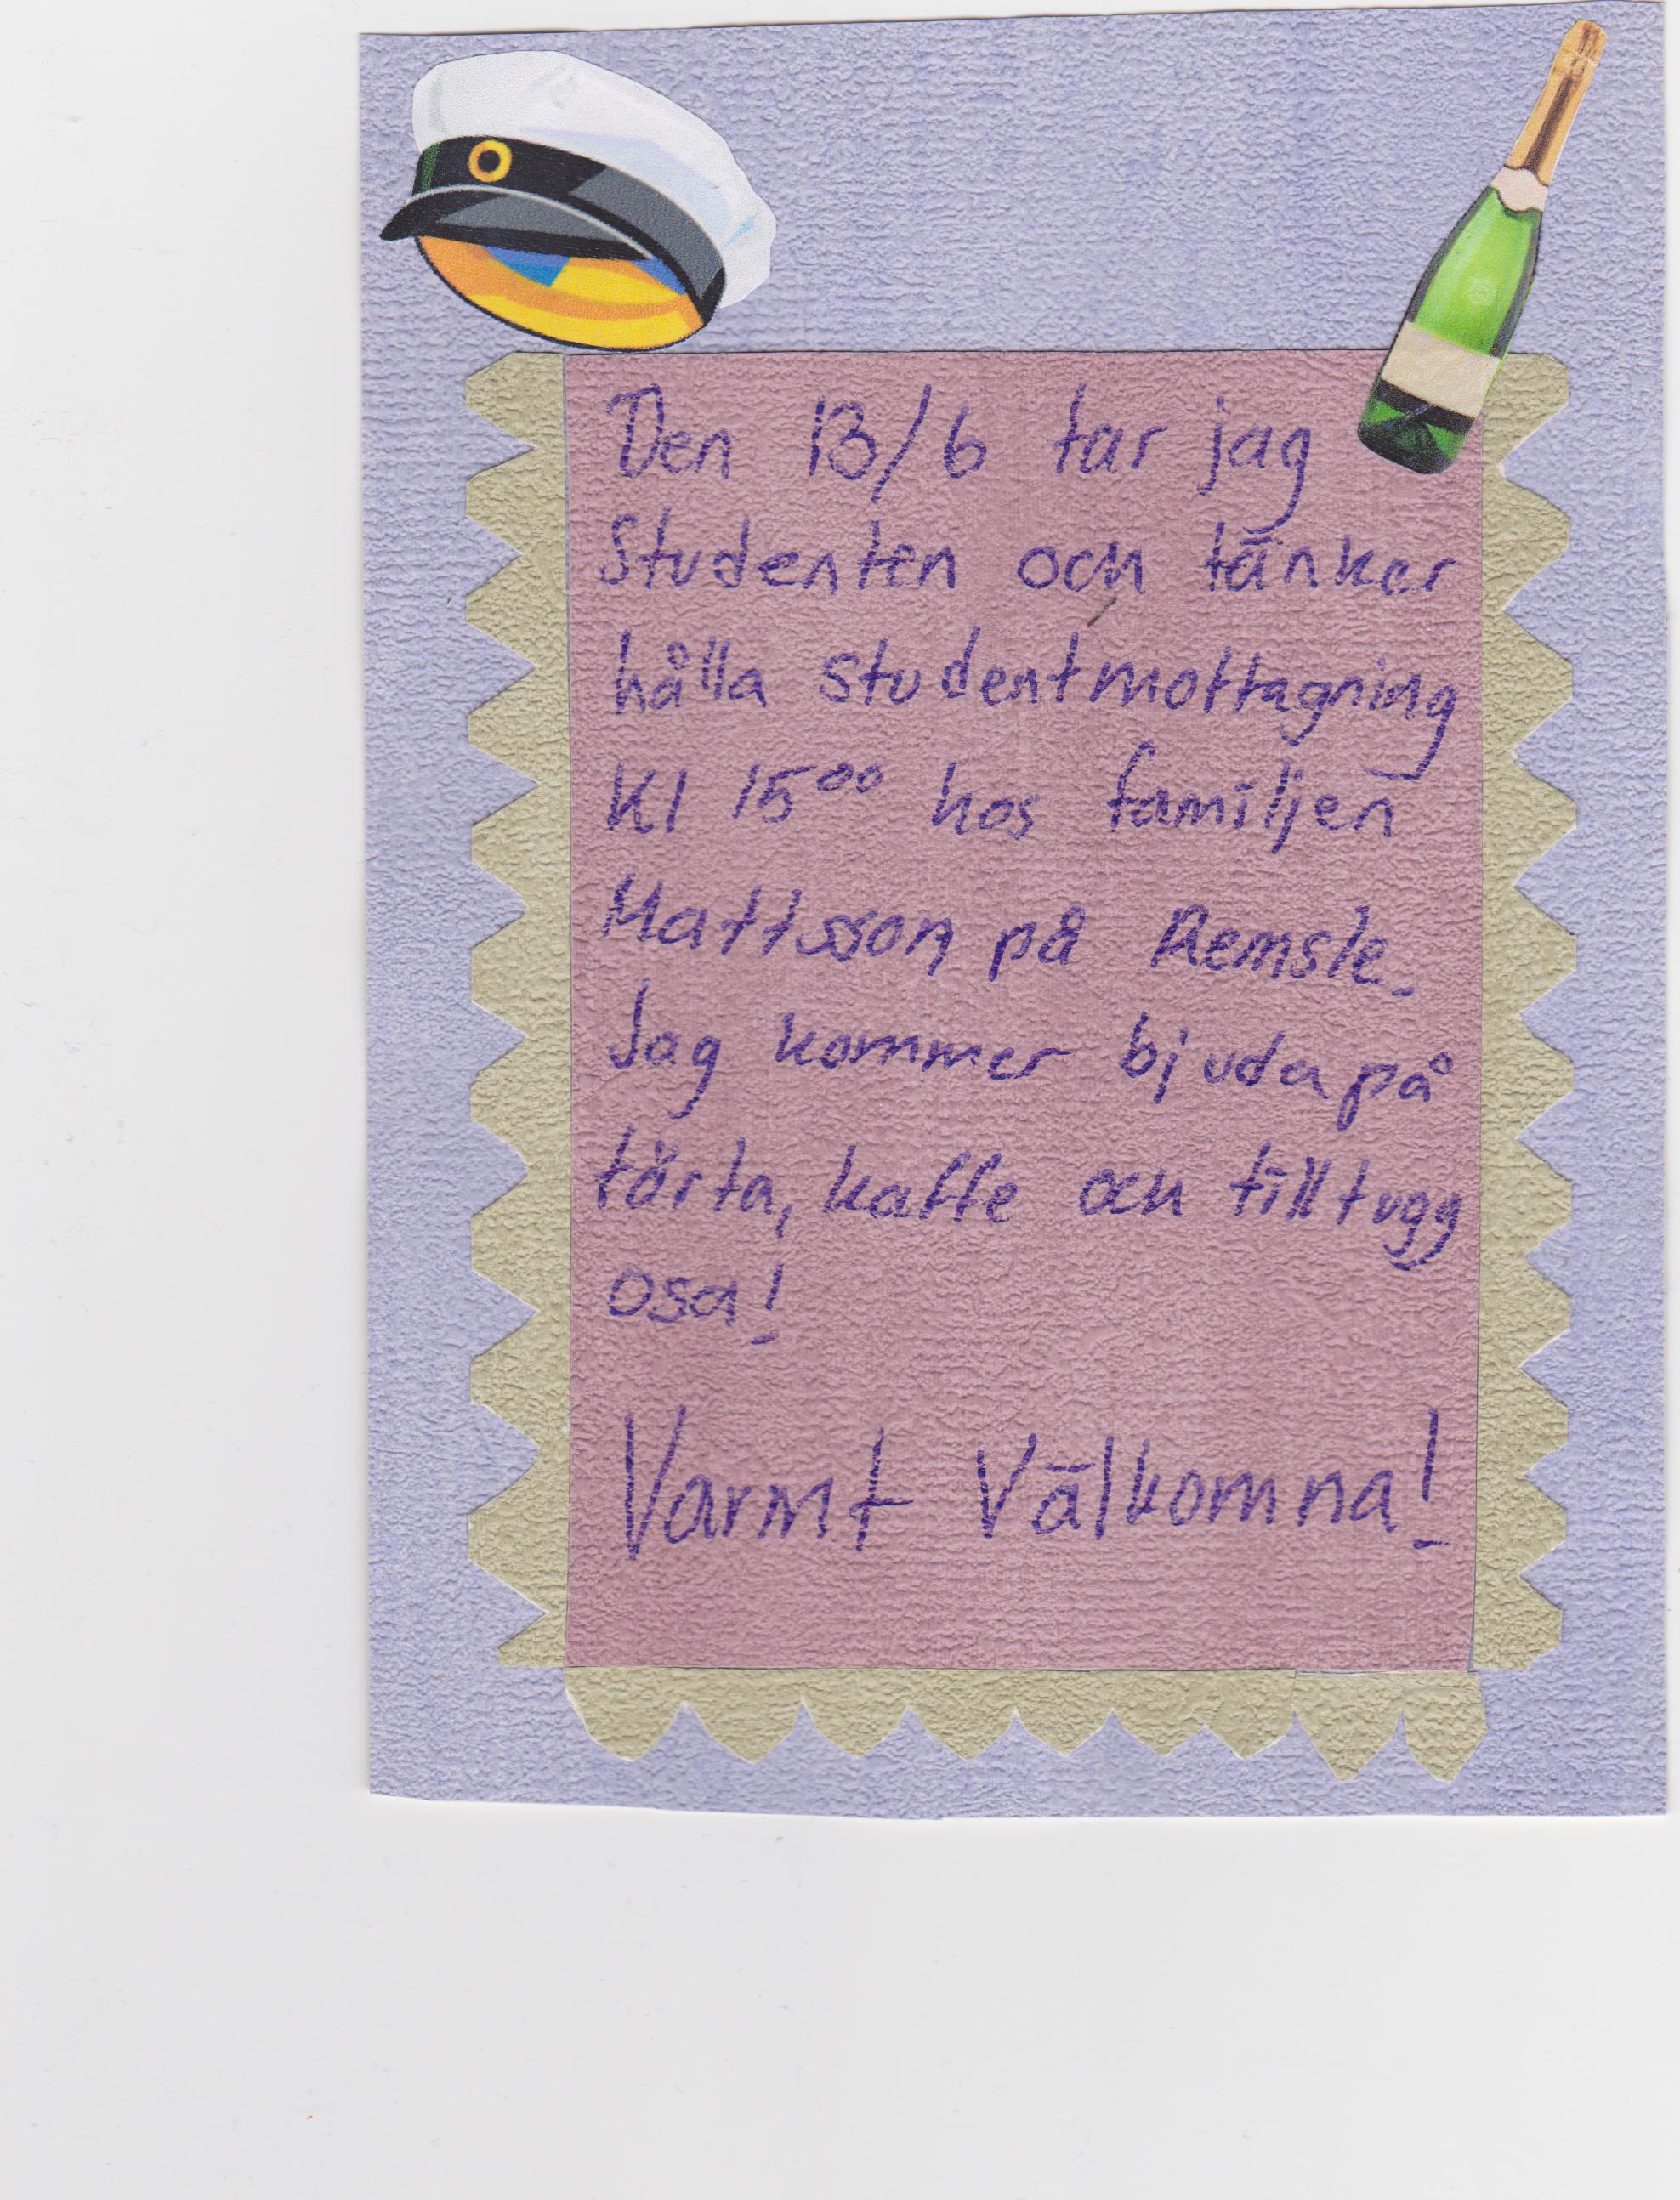 Den 13/6 tar jag
Studenten och tänker
hålla studentmottagning
Kl 15⁰⁰ hos familjen
Mattsson på Remsle.
Jag kommer bjuda på
tårta, kaffe och tilltugg
osa!
Varmt Välkomna!